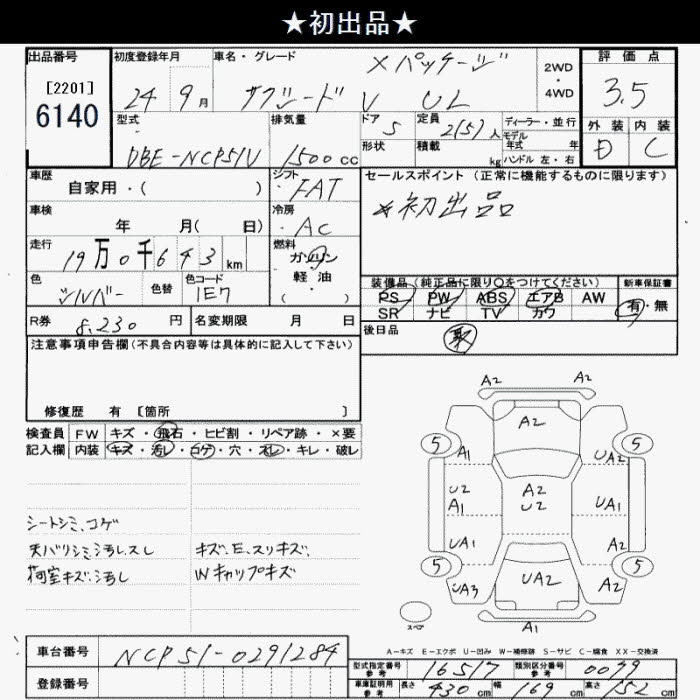 ★初出品★
出品番号 [2201] 6140
初度登録年月 24 9月
車名・グレード Xパッケージ
サクシード V UL
2WD ・ 4WD
評価点 3.5
外装 D 内装 C
型式 DBE-NCP51V
排気量 1500cc
ドア 5 定員 2(5)人
形状 積載 kg
ディーラー・並行
モデル年式 年
ハンドル 左・右
車歴 自家用・( )
シフト FAT
セールスポイント (正常に機能するものに限ります)
*初出品
車検 年 月( 日)
冷房 AC
走行 19万0千643km
燃料 ガソリン 軽油 ・
色 シルバー 色替 色コード 1E7
装備品 (純正品に限り○をつけてください) 新車保証書
PS PW ABS エアB AW 有・無
SR ナビ TV カワ
R券 8,230円 名変期限 月 日
後日品 取
注意事項申告欄 (不具合内容等は具体的に記入して下さい)
修復歴 有 [箇所 ]
検査員 FW キズ・飛石・ヒビ割・リペア跡・×要
記入欄 内装 キズ・汚レ・コゲ・穴・スレ・キレ・破レ
シートシミ、コゲ
天バリシミ、汚レスレ
荷室キズ、汚レ
キズ、E、スリキズ、
Wキャップキズ
A2 A2
A2
5 5
A1 UA2
U2 A1 A2 U2 UA1
UA1 A2
5 5
UA3 UA2 A2
スペア
A1
A-キズ E-エクボ U-凹み W-補修跡 S-サビ C-腐食 XX-交換済
車台番号 NCP51-0291284
登録番号
型式指定番号 参考 16517 類別区分番号 参考 0079
車庫証明用 参考 長さ 430cm 幅 169cm 高さ 152cm